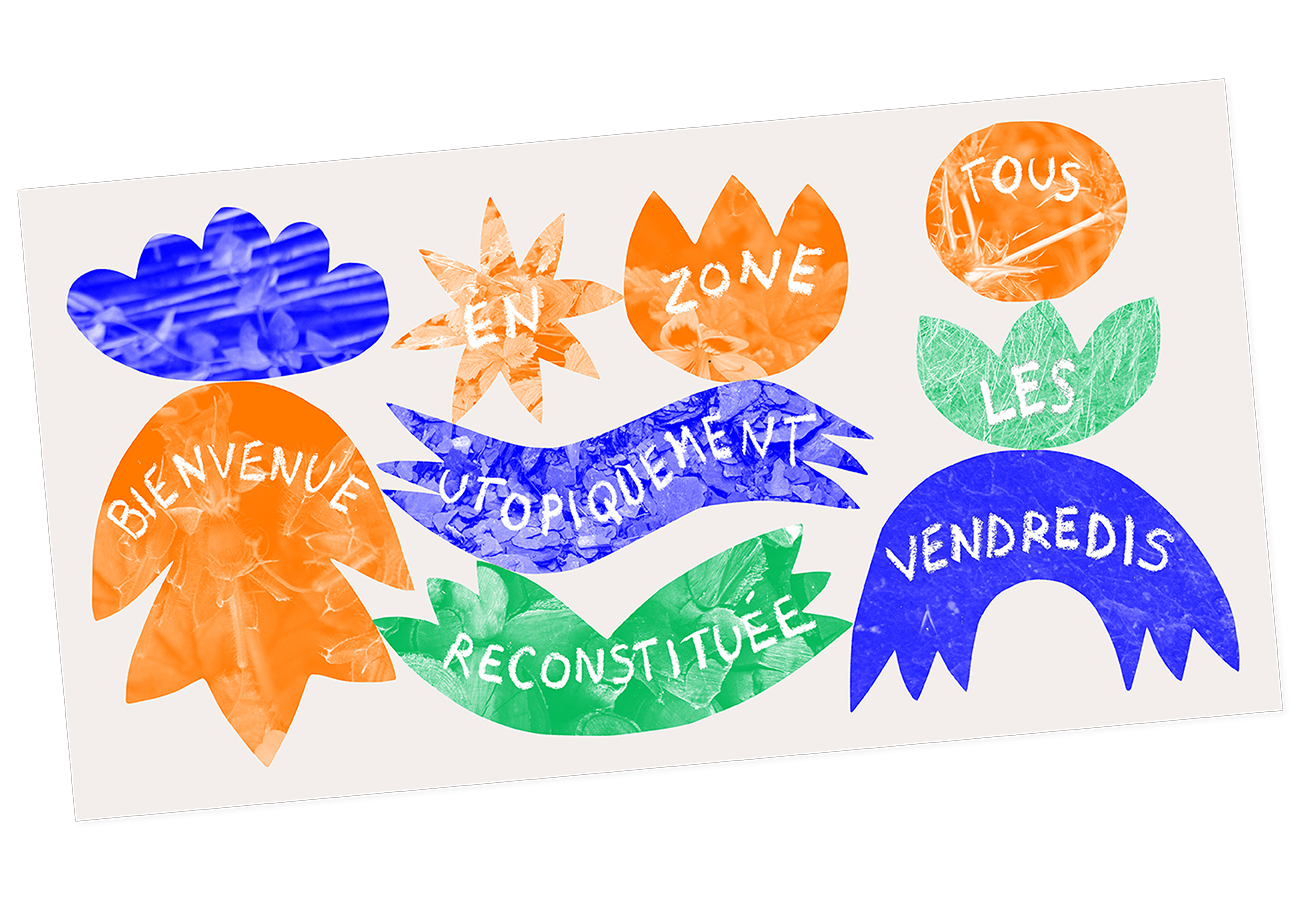 BIENVENUE
EN ZONE
UTOPIQUEMENT
RECONSTITUÉE
TOUS
LES
VENDREDIS